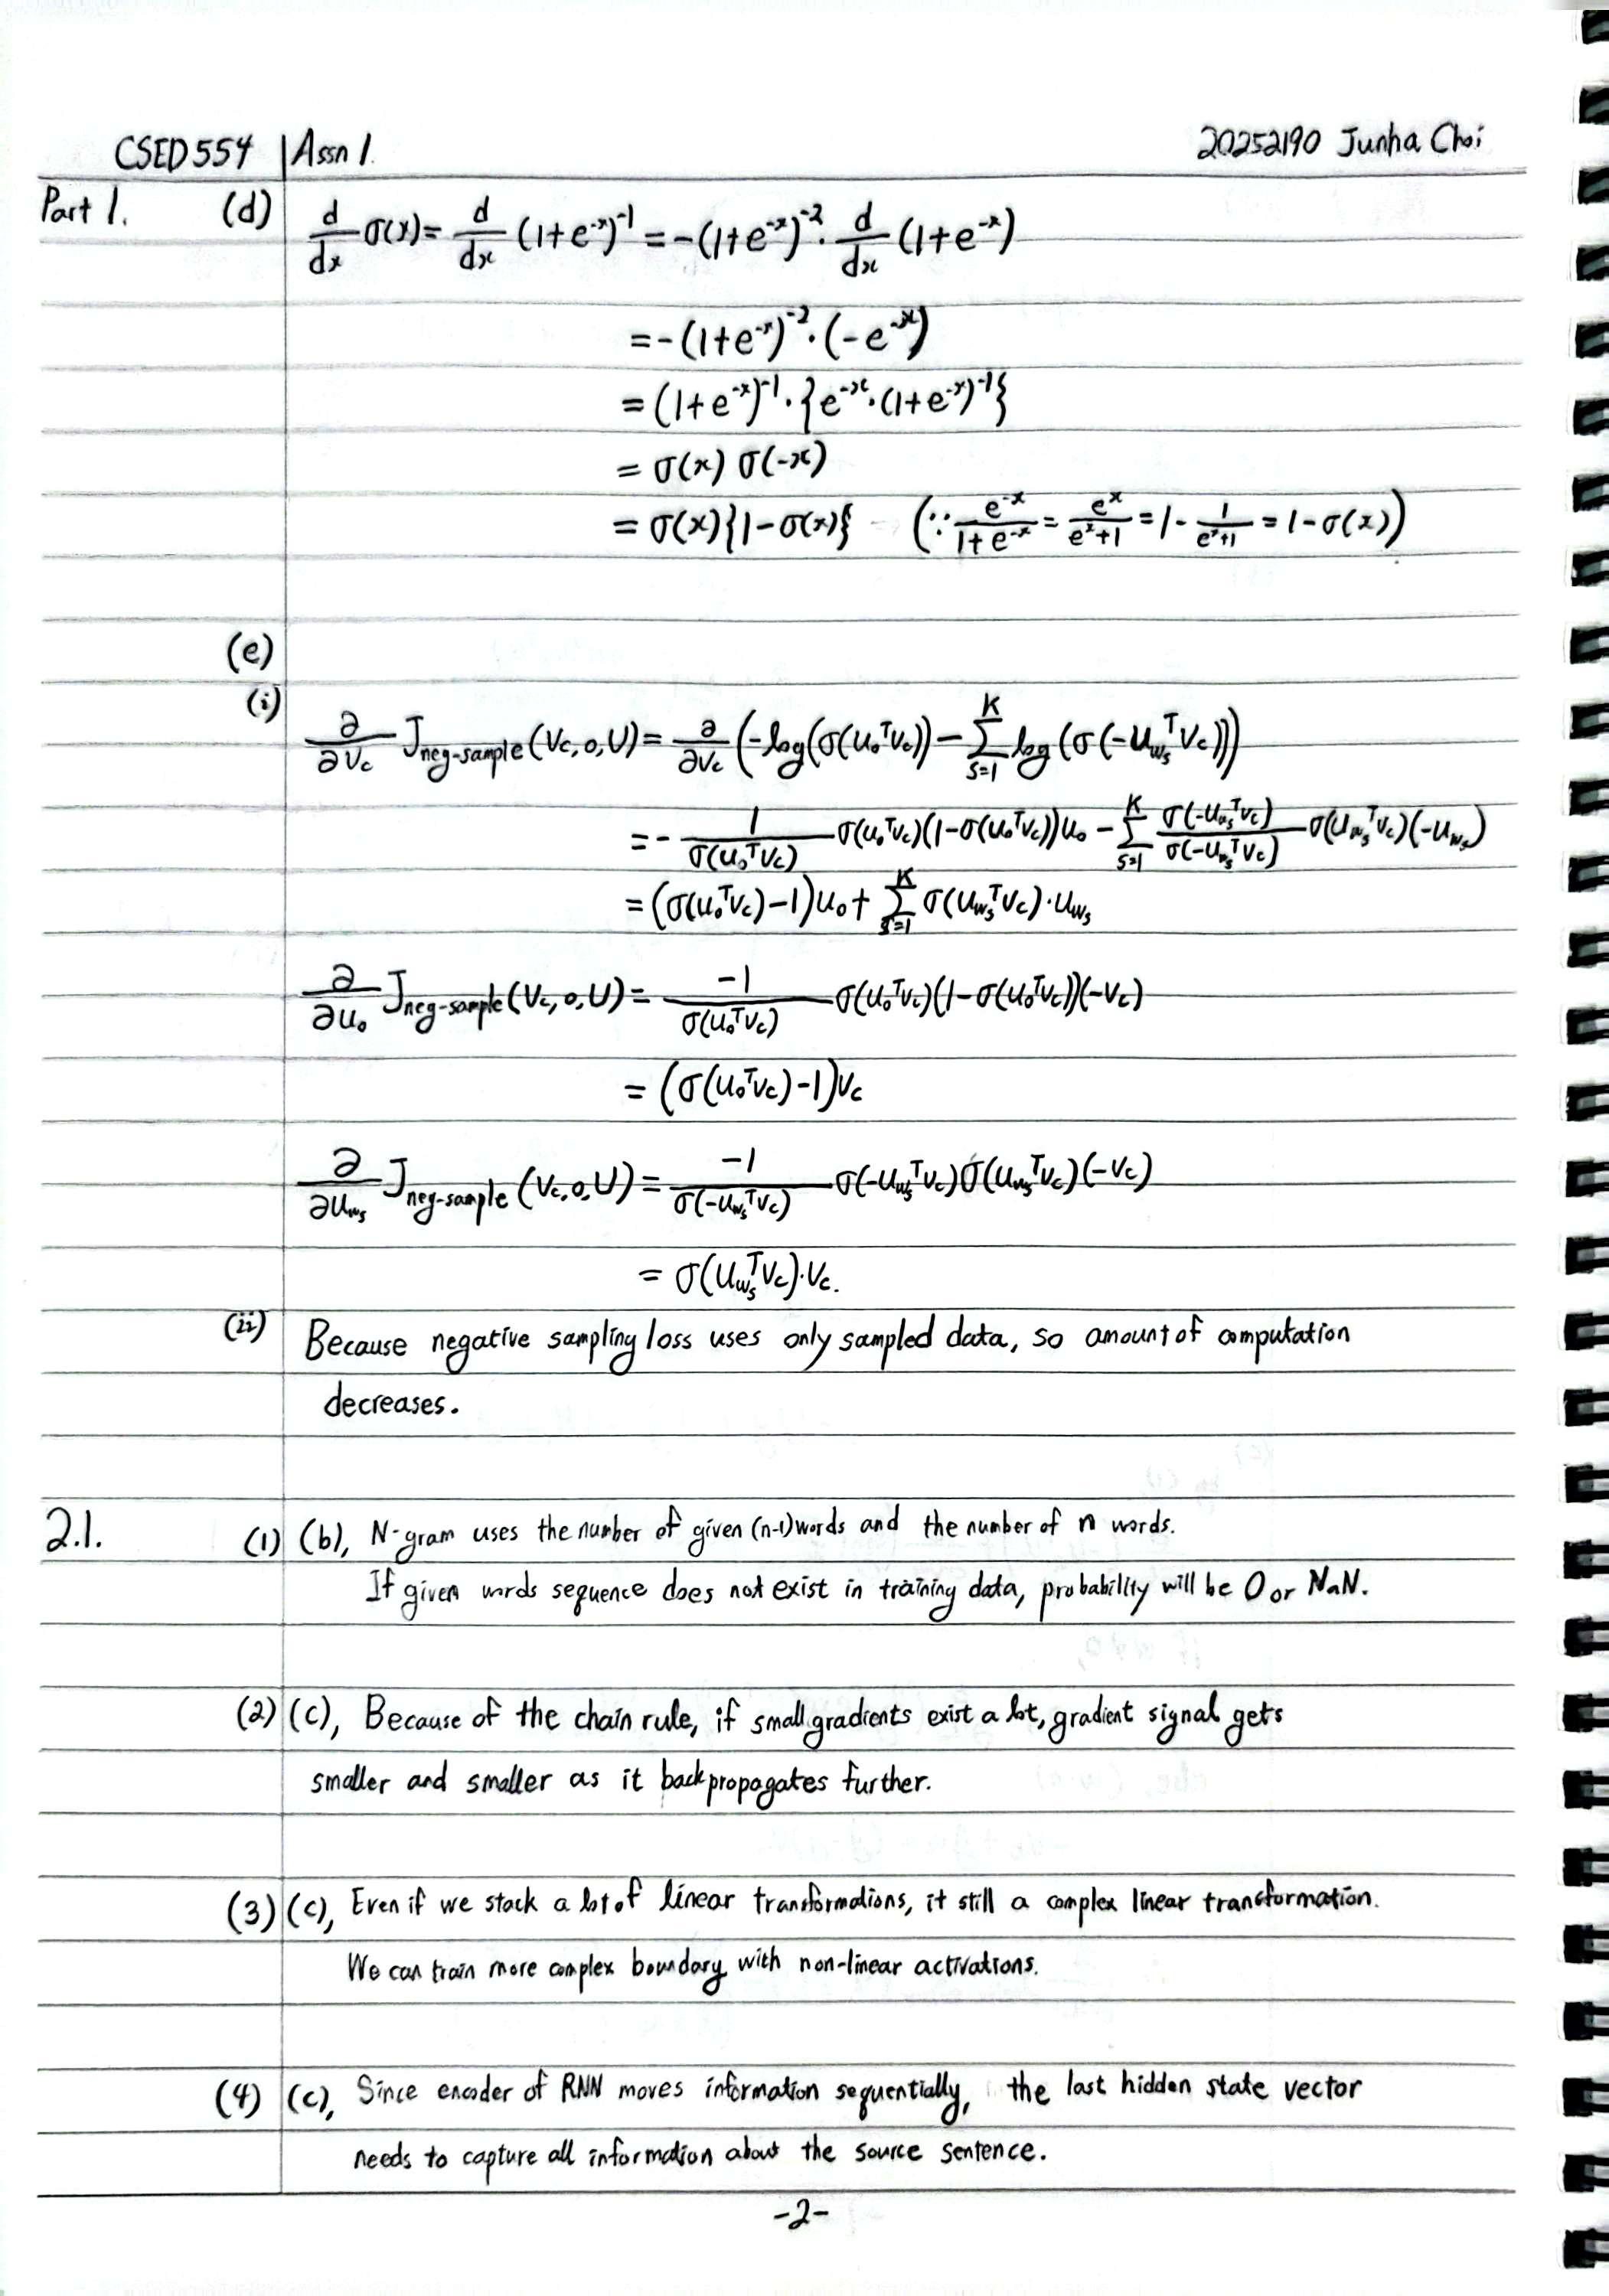 CSED554 Assn 1. 20252190 Junha Choi
Part 1. (d) d/dx σ(x) = d/dx (1+e^{-x})^{-1} = -(1+e^{-x})^{-2} · d/dx (1+e^{-x})
= -(1+e^{-x})^{-2} · (-e^{-x})
= (1+e^{-x})^{-1} · {e^{-x} · (1+e^{-x})^{-1}}
= σ(x) σ(-x)
= σ(x){1-σ(x)} (∵ e^{-x}/(1+e^{-x}) = e^x/(e^x+1) = 1 - 1/(e^x+1) = 1-σ(x))
(e)
(i)
∂/∂v_c J_{neg-sample}(v_c, o, U) = ∂/∂v_c (-log(σ(u_o^T v_c)) - Σ_{s=1}^{K} log(σ(-u_{w_s}^T v_c)))
= - 1/σ(u_o^T v_c) σ(u_o^T v_c)(1-σ(u_o^T v_c))u_o - Σ_{s=1}^{K} σ(-u_{w_s}^T v_c)/σ(-u_{w_s}^T v_c) σ(u_{w_s}^T v_c)(-u_{w_s})
= (σ(u_o^T v_c)-1)u_o + Σ_{s=1}^{K} σ(u_{w_s}^T v_c) · u_{w_s}
∂/∂u_o J_{neg-sample}(v_c, o, U) = -1/σ(u_o^T v_c) σ(u_o^T v_c)(1-σ(u_o^T v_c))(-v_c)
= (σ(u_o^T v_c)-1)v_c
∂/∂u_{w_s} J_{neg-sample}(v_c, o, U) = -1/σ(-u_{w_s}^T v_c) σ(-u_{w_s}^T v_c)σ(u_{w_s}^T v_c)(-v_c)
= σ(u_{w_s}^T v_c) · v_c.
(ii) Because negative sampling loss uses only sampled data, so amount of computation
decreases.
2.1. (1) (b), N-gram uses the number of given (n-1) words and the number of n words.
If given words sequence does not exist in training data, probability will be 0 or NaN.
(2) (c), Because of the chain rule, if small gradients exist a lot, gradient signal gets
smaller and smaller as it backpropagates further.
(3) (c), Even if we stack a lot of linear transformations, it still a complex linear transformation.
We can train more complex boundary with non-linear activations.
(4) (c), Since encoder of RNN moves information sequentially, the last hidden state vector
needs to capture all information about the source sentence.
-2-